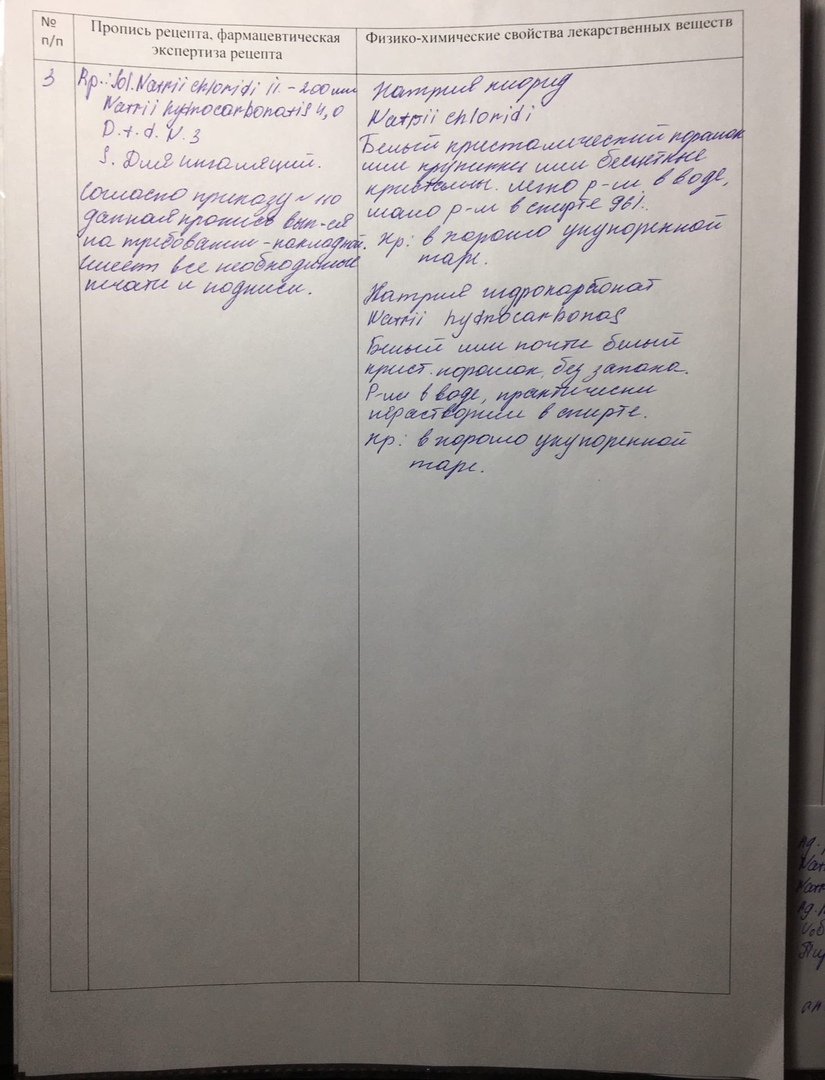 №
п/п
Пропись рецепта, фармацевтическая
экспертиза рецепта
Физико-химические свойства лекарственных веществ
3
Rp.: Sol. Natrii chloridi - 200мл
Natrii hydrocarbonatis 4,0
D. t. d. N. 3
S. Для ингаляций.
Согласно приказу №110
данная пропись вып-ся
на требовании-накладной.
Имеет все необходимые
печати и подписи.
Натрия хлорид
Natрii chloridi
Белый кристалический порошок
или крупинки или бесцветные
кристаллы. легко р-м. в воде,
мало р-м в спирте 96%.
Хр: в хорошо укупоренной
таре.
Натрия гидрокарбонат
Natrii hydrocarbonas
Белый или почти белый
крист. порошок, без запаха.
Р-м в воде, практически
нерастворим в спирте.
Хр: в хорошо укупоренной
таре.